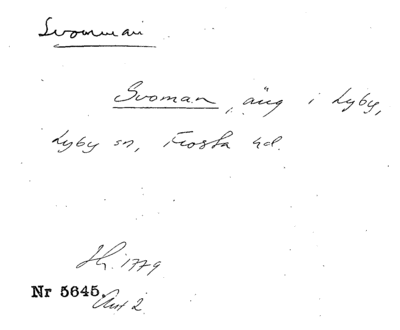 Svoman
Svoman, äng i Lyby,
Lyby sn, Frosta hd.
Sk. 1779
Nr 5645.
Akt 2